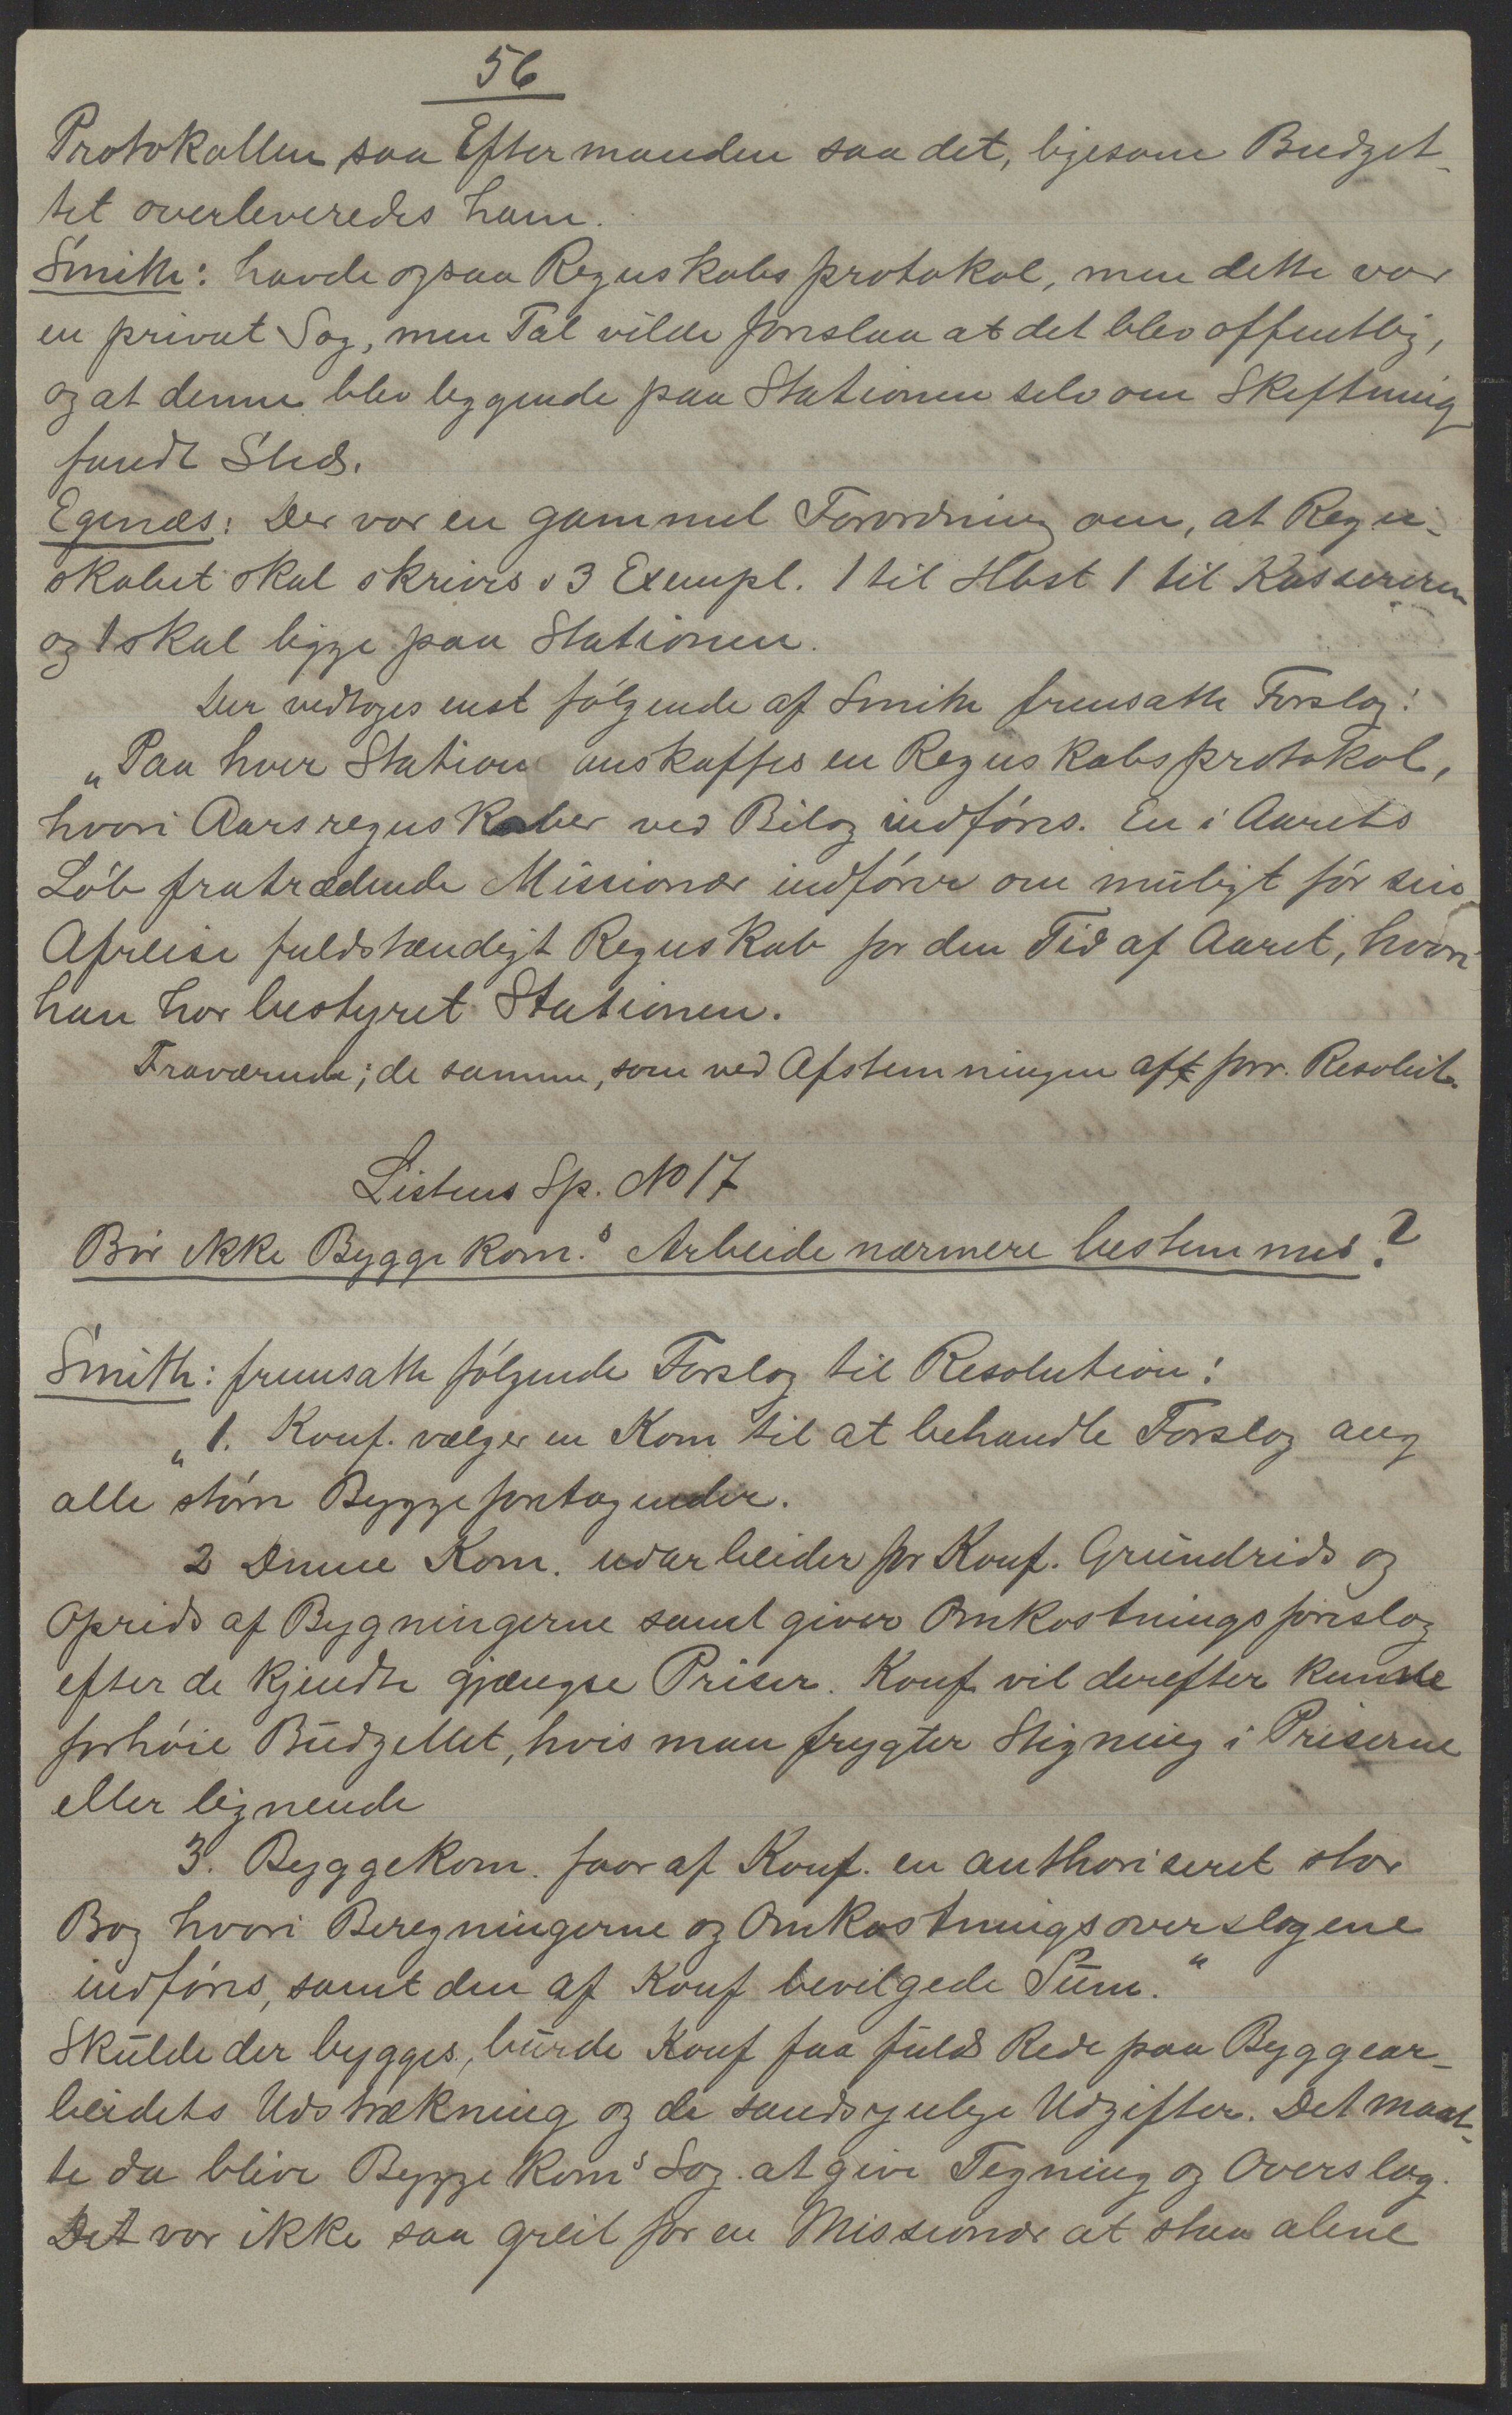 56
Protokollen, saa Eftermanden saa det, ligesom Budget-
tet overleveredes ham.
Smith: havde ogsaa Regnskabsprotokol, men dette var
en privat Sag, men Tal vilde foreslaa at det blev offentlig,
og at denne blev liggende paa Stationen selv om Skiftning
fandt Sted.
Egenæs: Der var en gammel Forordning om, at Regn-
skabet skal skrives i 3 Exempl. 1 til Hbst 1 til Kassereren
og 1 skal ligge paa Stationen.
Der vedtoges enst følgende af Smith fremsatte Forslag:
„Paa hver Station anskaffes en Regnskabsprotokol,
hvori Aarsregnskaber ved Bilag indføres. En i Aarets
Løb fratrædende Missionær indfører om muligt før sin
Afreise fuldstændigt Regnskab for den Tid af Aaret, hvori
han har bestyret Stationen.
Fraværende; de samme, som ved Afstemningen af forr. Resolut.
Listens Sp. No 17
Bør ikke Byggekom.s Arbeide nærmere bestemmes?
Smith: fremsatte følgende Forslag til Resolution:
„1. Konf. vælger en Kom til at behandle Forslag ang
alle større Byggeforetagender.
2 Denne Kom. udarbeider for Konf. Grundrids og
Oprids af Bygningerne samt giver Omkostningsforslag
efter de kjendte gjængse Priser. Konf vil derefter kunde
forhøie Budgettet, hvis man frygter Stigning i Priserne
eller lignende
3. Byggekom. faar af Konf. en authoriseret stor
Bog hvori Beregningerne og Omkostningsoverslagene
indføres, samt den af Konf bevilgede Sum."
Skulde der bygges, burde Konf faa fuld Rede paa Byggear-
beidets Udstrækning og de sandsynlige Udgifter. Det maat-
te da blive Byggekoms Sag at give Tegning og Overslag.
Det var ikke saa greit for en Missionær at staa alene